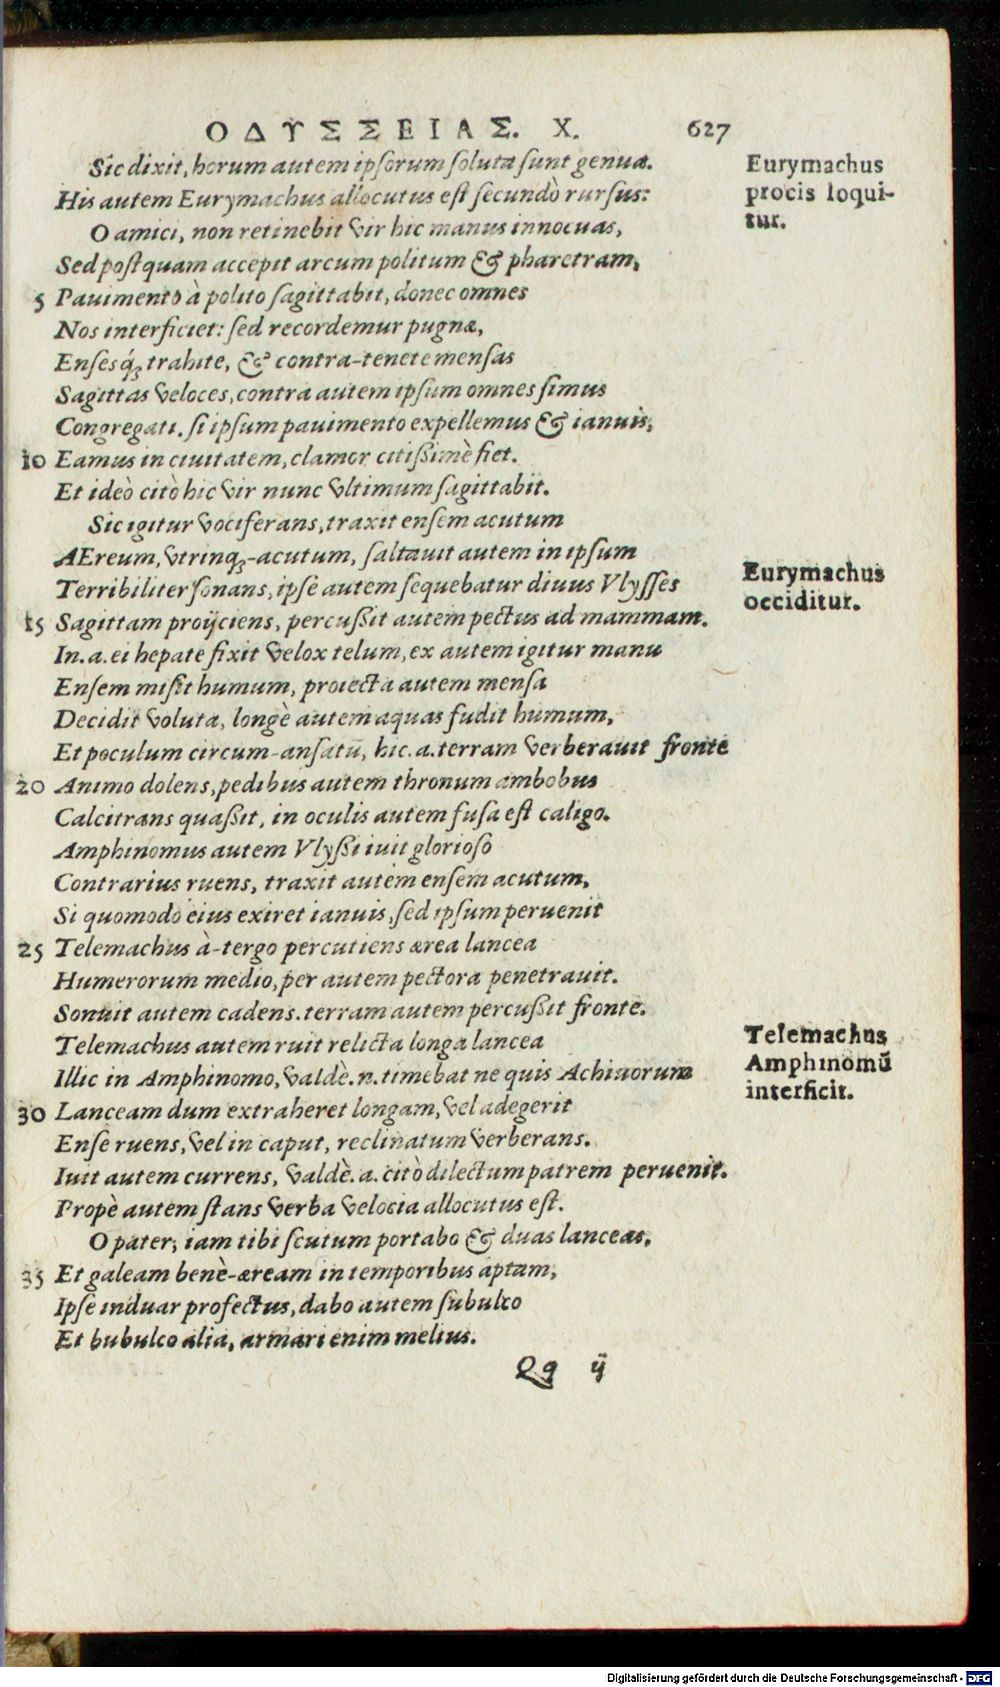 ΟΔΥΣΣΕΙΑΣ. Χ. 627
Sic dixit, horum autem ipsorum soluta sunt genua.
His autem Eurymachus allocutus est secundò rursus:
O amici, non retinebit vir hic manus innocuas,
Sed postquam accepit arcum politum & pharetram,
5 Pauimento à polito sagittabit, donec omnes
Nos interficiet: sed recordemur pugnæ,
Enses q́; trahite, & contra-tenete mensas
Sagittas veloces, contra autem ipsum omnes simus
Congregati. si ipsum pauimento expellemus & ianuis,
10 Eamus in ciuitatem, clamor citißimè fiet.
Et ideò citò hic vir nunc vltimum sagittabit.
Sic igitur vociferans, traxit ensem acutum
AEreum, vtrinq;-acutum, saltauit autem in ipsum
Terribiliter sonans, ipse autem sequebatur diuus Vlysses
15 Sagittam proijciens, percußit autem pectus ad mammam.
In. a. ei hepate fixit velox telum, ex autem igitur manu
Ensem misit humum, proiecta autem mensa
Decidit voluta, longè autem aquas fudit humum,
Et poculum circum-ansatū, hic. a. terram verberauit fronte
20 Animo dolens, pedibus autem thronum ambobus
Calcitrans quaßit, in oculis autem fusa est caligo.
Amphinomus autem Vlyßi iuit glorioso
Contrarius ruens, traxit autem ensem acutum,
Si quomodo eius exiret ianuis, sed ipsum peruenit
25 Telemachus à-tergo percutiens ærea lancea
Humerorum medio, per autem pectora penetrauit.
Sonuit autem cadens. terram autem percußit fronte.
Telemachus autem ruit relicta longa lancea
Illic in Amphinomo, valdè. n. timebat ne quis Achiuorum
30 Lanceam dum extraheret longam, vel adegerit
Ense ruens, vel in caput, reclinatum verberans.
Iuit autem currens, valdè. a. citò dilectum patrem peruenit.
Propè autem stans verba velocia allocutus est.
O pater, iam tibi scutum portabo & duas lanceas,
35 Et galeam benè-æream in temporibus aptam,
Ipse induar profectus, dabo autem subulco
Et bubulco alia, armari enim melius.
Qq ij
Eurymachus
procis loqui-
tur.
Eurymachus
occiditur.
Telemachus
Amphinomū
interficit.
Digitalisierung gefördert durch die Deutsche Forschungsgemeinschaft - DFG